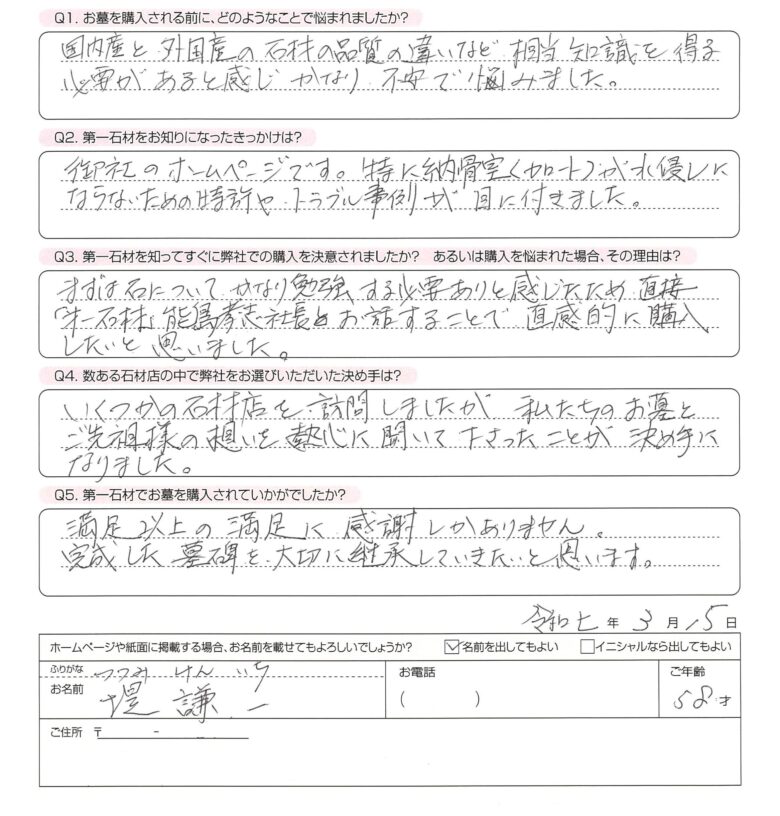 Q1. お墓を購入される前に、どのようなことで悩まれましたか?
国内産と外国産の石材の品質の違いなど 相当知識を得る
必要があると感じ かなり 不安で悩みました。
Q2. 第一石材をお知りになったきっかけは?
御社のホームページです。特に納骨室(カロート)が水侵しに
ならないための特許や トラブル事例が 目に付きました。
Q3. 第一石材を知ってすぐに弊社での購入を決意されましたか? あるいは購入を悩まれた場合、その理由は?
まずは石について かなり勉強する必要ありと感じたため 直接
「第一石材」能島孝志社長とお話することで 直感的に購入
したいと思いました。
Q4. 数ある石材店の中で弊社をお選びいただいた決め手は?
いくつかの石材店を訪問しましたが 私たちのお墓と
ご先祖様の想いを熱心に聞いて下さったことが 決め手に
なりました。
Q5. 第一石材でお墓を購入されていかがでしたか?
満足以上の満足に 感謝しかありません。
完成した墓碑を大切に継承していきたいと思います。
令和七年3月15日
ホームページや紙面に掲載する場合、お名前を載せてもよろしいでしょうか? ☑名前を出してもよい □イニシャルなら出してもよい
ふりがな つつみ けん いち
お名前 堤 謙一
お電話
( )
ご年齢
58才
ご住所 〒 -